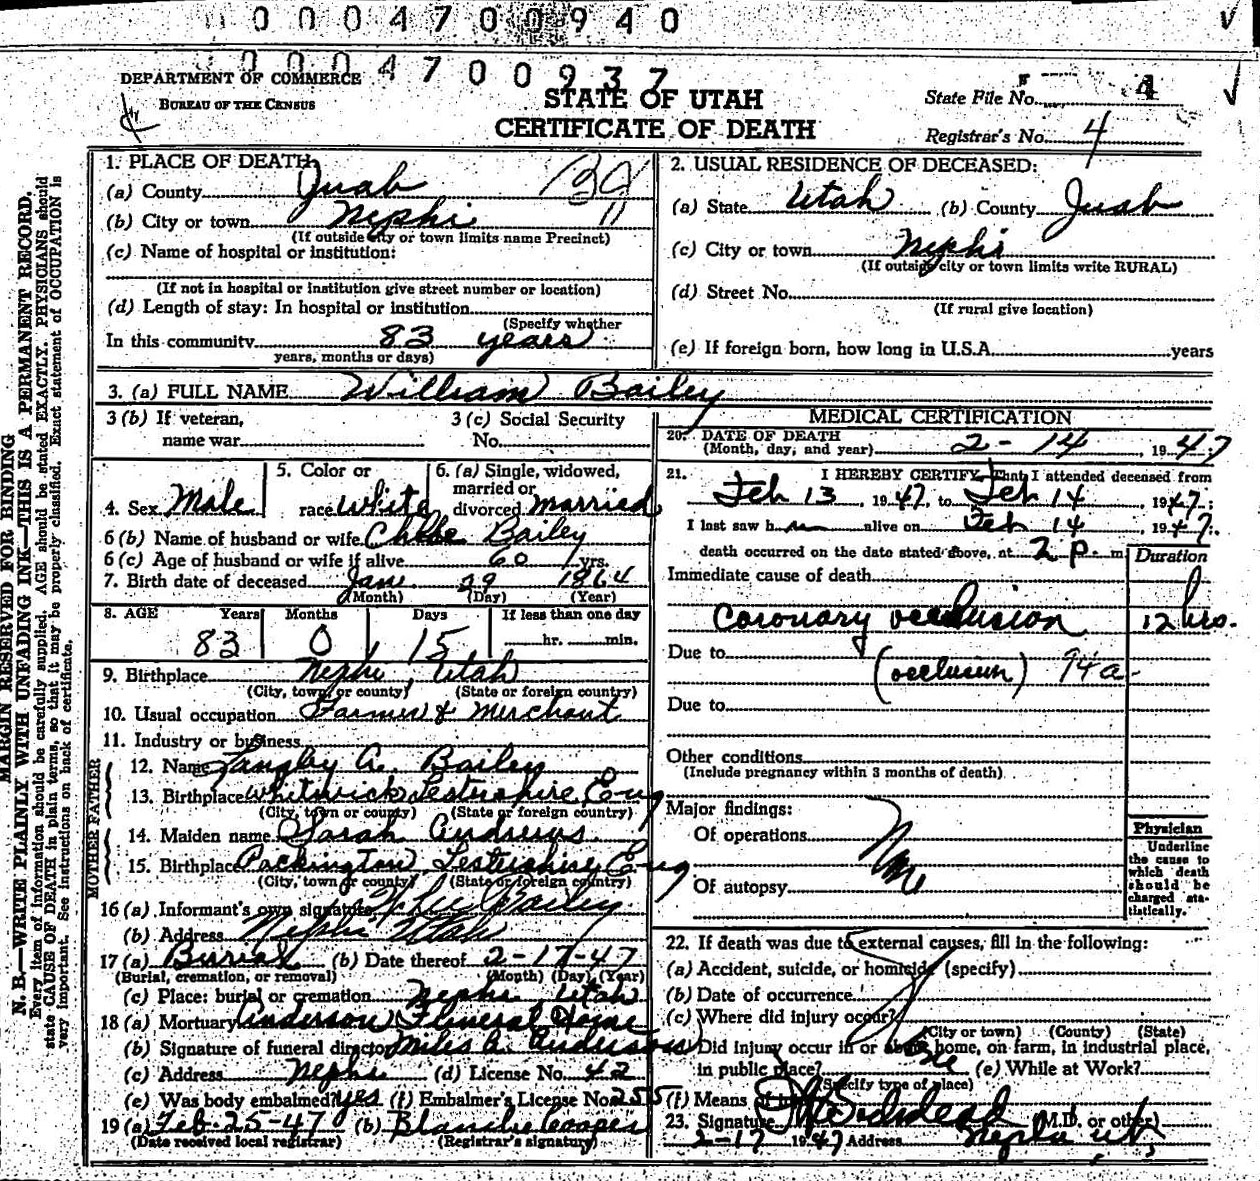 0004700940
0004700937
DEPARTMENT OF COMMERCE
BUREAU OF THE CENSUS
STATE OF UTAH
CERTIFICATE OF DEATH
State File No. 4
Registrar's No. 4
MARGIN RESERVED FOR BINDING
N. B.—WRITE PLAINLY WITH UNFADING INK—THIS IS A PERMANENT RECORD.
Every item of information should be carefully supplied. AGE should be stated EXACTLY. PHYSICIANS should
state CAUSE OF DEATH in plain terms, so that it may be properly classified. Exact statement of OCCUPATION is
very important. See instructions on back of certificate.
1. PLACE OF DEATH:
(a) County Juab
(b) City or town Nephi 11
(If outside city or town limits name Precinct)
(c) Name of hospital or institution:
(If not in hospital or institution give street number or location)
(d) Length of stay: In hospital or institution
(Specify whether
In this community 83 years
years, months or days)
2. USUAL RESIDENCE OF DECEASED:
(a) State Utah (b) County Juab
(c) City or town Nephi
(If outside city or town limits write RURAL)
(d) Street No.
(If rural give location)
(e) If foreign born, how long in U.S.A. years
3. (a) FULL NAME William Bailey
3 (b) If veteran,
name war
3 (c) Social Security
No.
4. Sex Male
5. Color or
race White
6. (a) Single, widowed,
married or
divorced married
6 (b) Name of husband or wife Chloe Bailey
6 (c) Age of husband or wife if alive 60 yrs.
7. Birth date of deceased Jan. 29 1864
(Month) (Day) (Year)
8. AGE Years Months Days If less than one day
83 0 15 hr. min.
9. Birthplace Nephi, Utah
(City, town, or county) (State or foreign country)
10. Usual occupation Farmer & Merchant
11. Industry or business
FATHER
12. Name Langley A. Bailey
13. Birthplace Whitwick Lestershire Eng
(City, town or county) (State or foreign country)
MOTHER
14. Maiden name Sarah Andrews
15. Birthplace Packington, Lestershire Eng.
(City, town or county) (State or foreign country)
16 (a) Informant's own signature Bailey
(b) Address Nephi Utah
17 (a) Burial (b) Date thereof 2-17-47
(Burial, cremation, or removal) (Month) (Day) (Year)
(c) Place: burial or cremation Nephi, Utah
18 (a) Mortuary Anderson Funeral Home
(b) Signature of funeral director Miles A. Anderson
(c) Address Nephi (d) License No. 42
(e) Was body embalmed? yes (f) Embalmer's License No. 255
19 (a) Feb. 25-47 (b) Blanche Cooper
(Date received local registrar) (Registrar's signature)
MEDICAL CERTIFICATION
20. DATE OF DEATH
(Month, day, and year) 2-14, 1947
21. I HEREBY CERTIFY, That I attended deceased from
Feb 13, 1947, to Feb 14, 1947;
I last saw h im alive on Feb 14, 1947.
death occurred on the date stated above, at 2 p. m
Duration
Immediate cause of death
Coronary occlusion 12 hrs.
Due to (occlusion) 94a.
Due to
Other conditions
(Include pregnancy within 3 months of death)
Major findings:
Of operations
Of autopsy
Physician
Underline
the cause to
which death
should be
charged sta-
tistically.
22. If death was due to external causes, fill in the following:
(a) Accident, suicide, or homicide (specify)
(b) Date of occurrence
(c) Where did injury occur?
(City or town) (County) (State)
Did injury occur in or about home, on farm, in industrial place,
in public place? (e) While at Work?
(Specify type of place)
(f) Means of
23. Signature (M.D. or other)
2-17 1947 Address Nephi Ut.